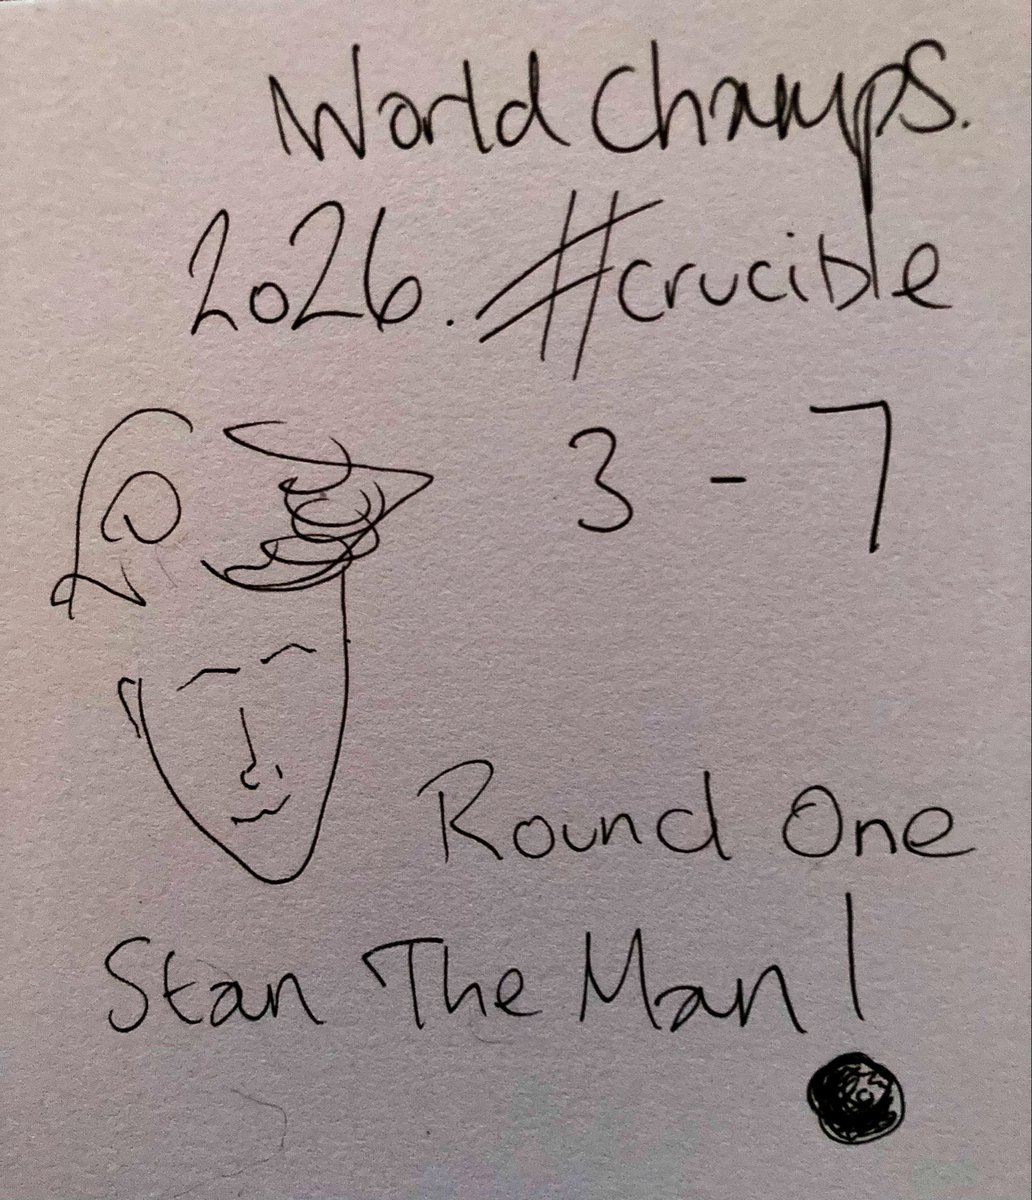 World Champs.
2026. #crucible
3 - 7
Round One
Stan The Man!